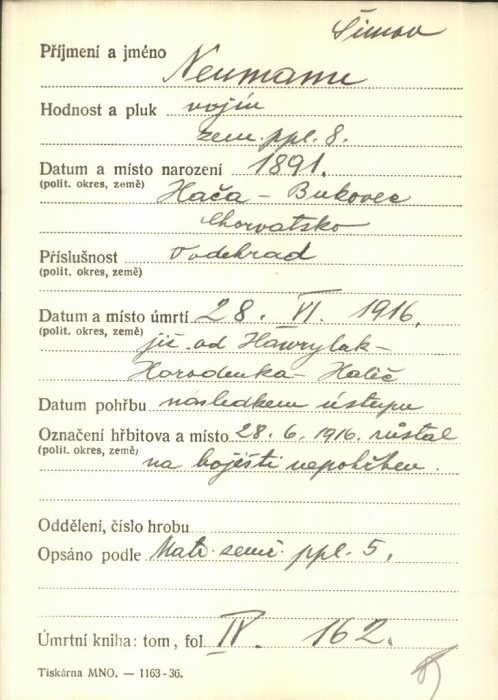 Šimon
Příjmení a jméno Neumann
Hodnost a pluk vojín
zem. ppl. 8.
Datum a místo narození 1891.
(polit. okres, země) Hača - Bukovec
Chorvatsko
Příslušnost Vodehrad
(polit. okres, země)
Datum a místo úmrtí 28. VI. 1916.
(polit. okres, země) již. od Hawrylak-
Horodenka - Halič
Datum pohřbu následkem ústupu
Označení hřbitova a místo 28. 6. 1916. zůstal
(polit. okres, země) na bojišti nepohřben.
Oddělení, číslo hrobu
Opsáno podle Matr. zemř. ppl. 5.
Úmrtní kniha: tom, fol. IV. 162.
Tiskárna MNO. — 1163-36.